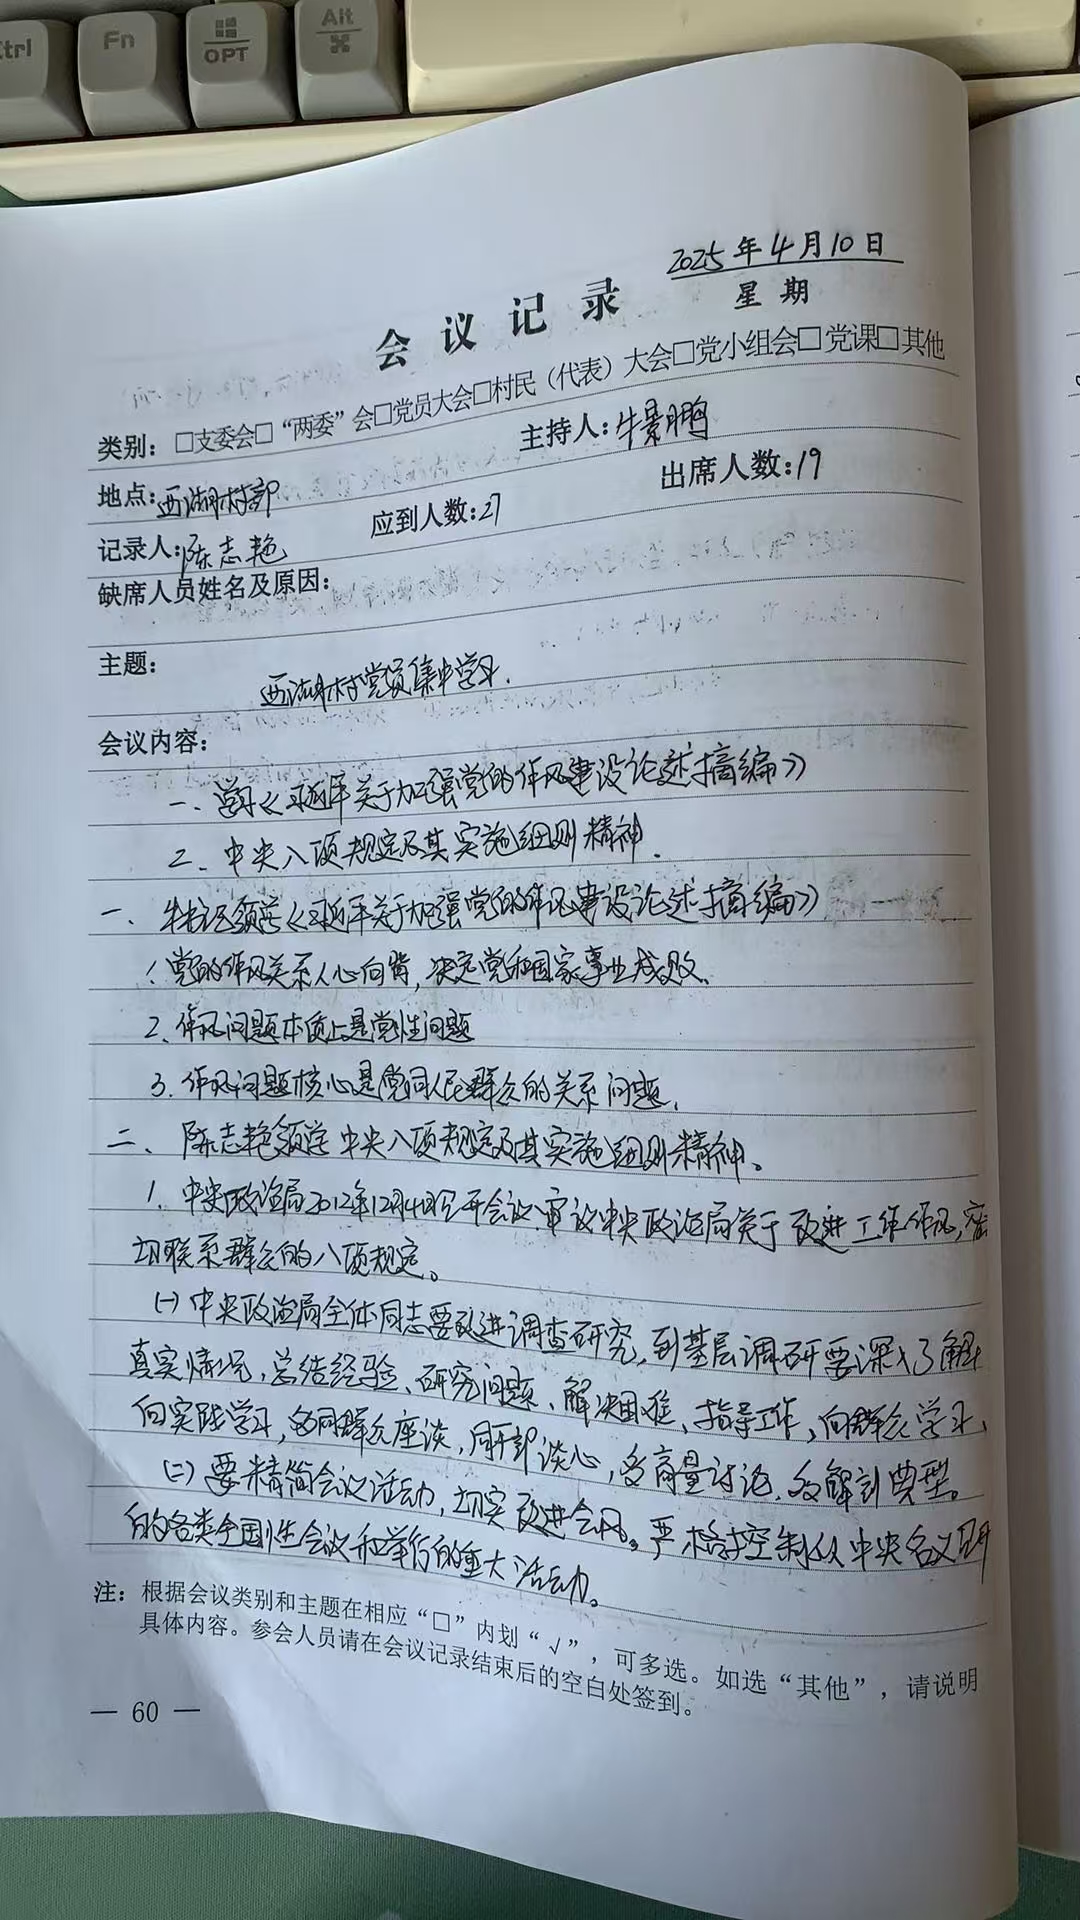 Ctrl
Fn
OPT
Alt
2025年4月10日
星期
会议记录
类别：□支委会□“两委”会□党员大会□村民（代表）大会□党小组会□党课□其他
地点:西湖村部
主持人:牛景鹏
记录人:陈志艳
应到人数:27
出席人数:19
缺席人员姓名及原因：
主题：
西湖村党员集中学习.
会议内容：
一、学习《习近平关于加强党的作风建设论述摘编》
二、中央八项规定及其实施细则精神.
一、牛书记领学《习近平关于加强党的作风建设论述摘编》
1.党的作风关系人心向背,决定党和国家事业成败、
2.作风问题本质上是党性问题
3.作风问题核心是党同人民群众的关系问题.
二、陈志艳领学中央八项规定及其实施细则精神。
1.中央政治局2012年12月4日召开会议、审议中央政治局关于改进工作作风,密
切联系群众的八项规定。
(一)中央政治局全体同志要改进调查研究,到基层调研要深入了解
真实情况,总结经验、研究问题、解决困难、指导工作,向群众学习、
向实践学习,多同群众座谈,同干部谈心,多商量讨论.多解剖典型。
(二)要精简会议活动,切实改进会风。严格控制以中央名义召开
的各类全国性会议和举行的重大活动。
注：根据会议类别和主题在相应“□”内划“√”，可多选。如选“其他”，请说明
具体内容。参会人员请在会议记录结束后的空白处签到。
— 60 —